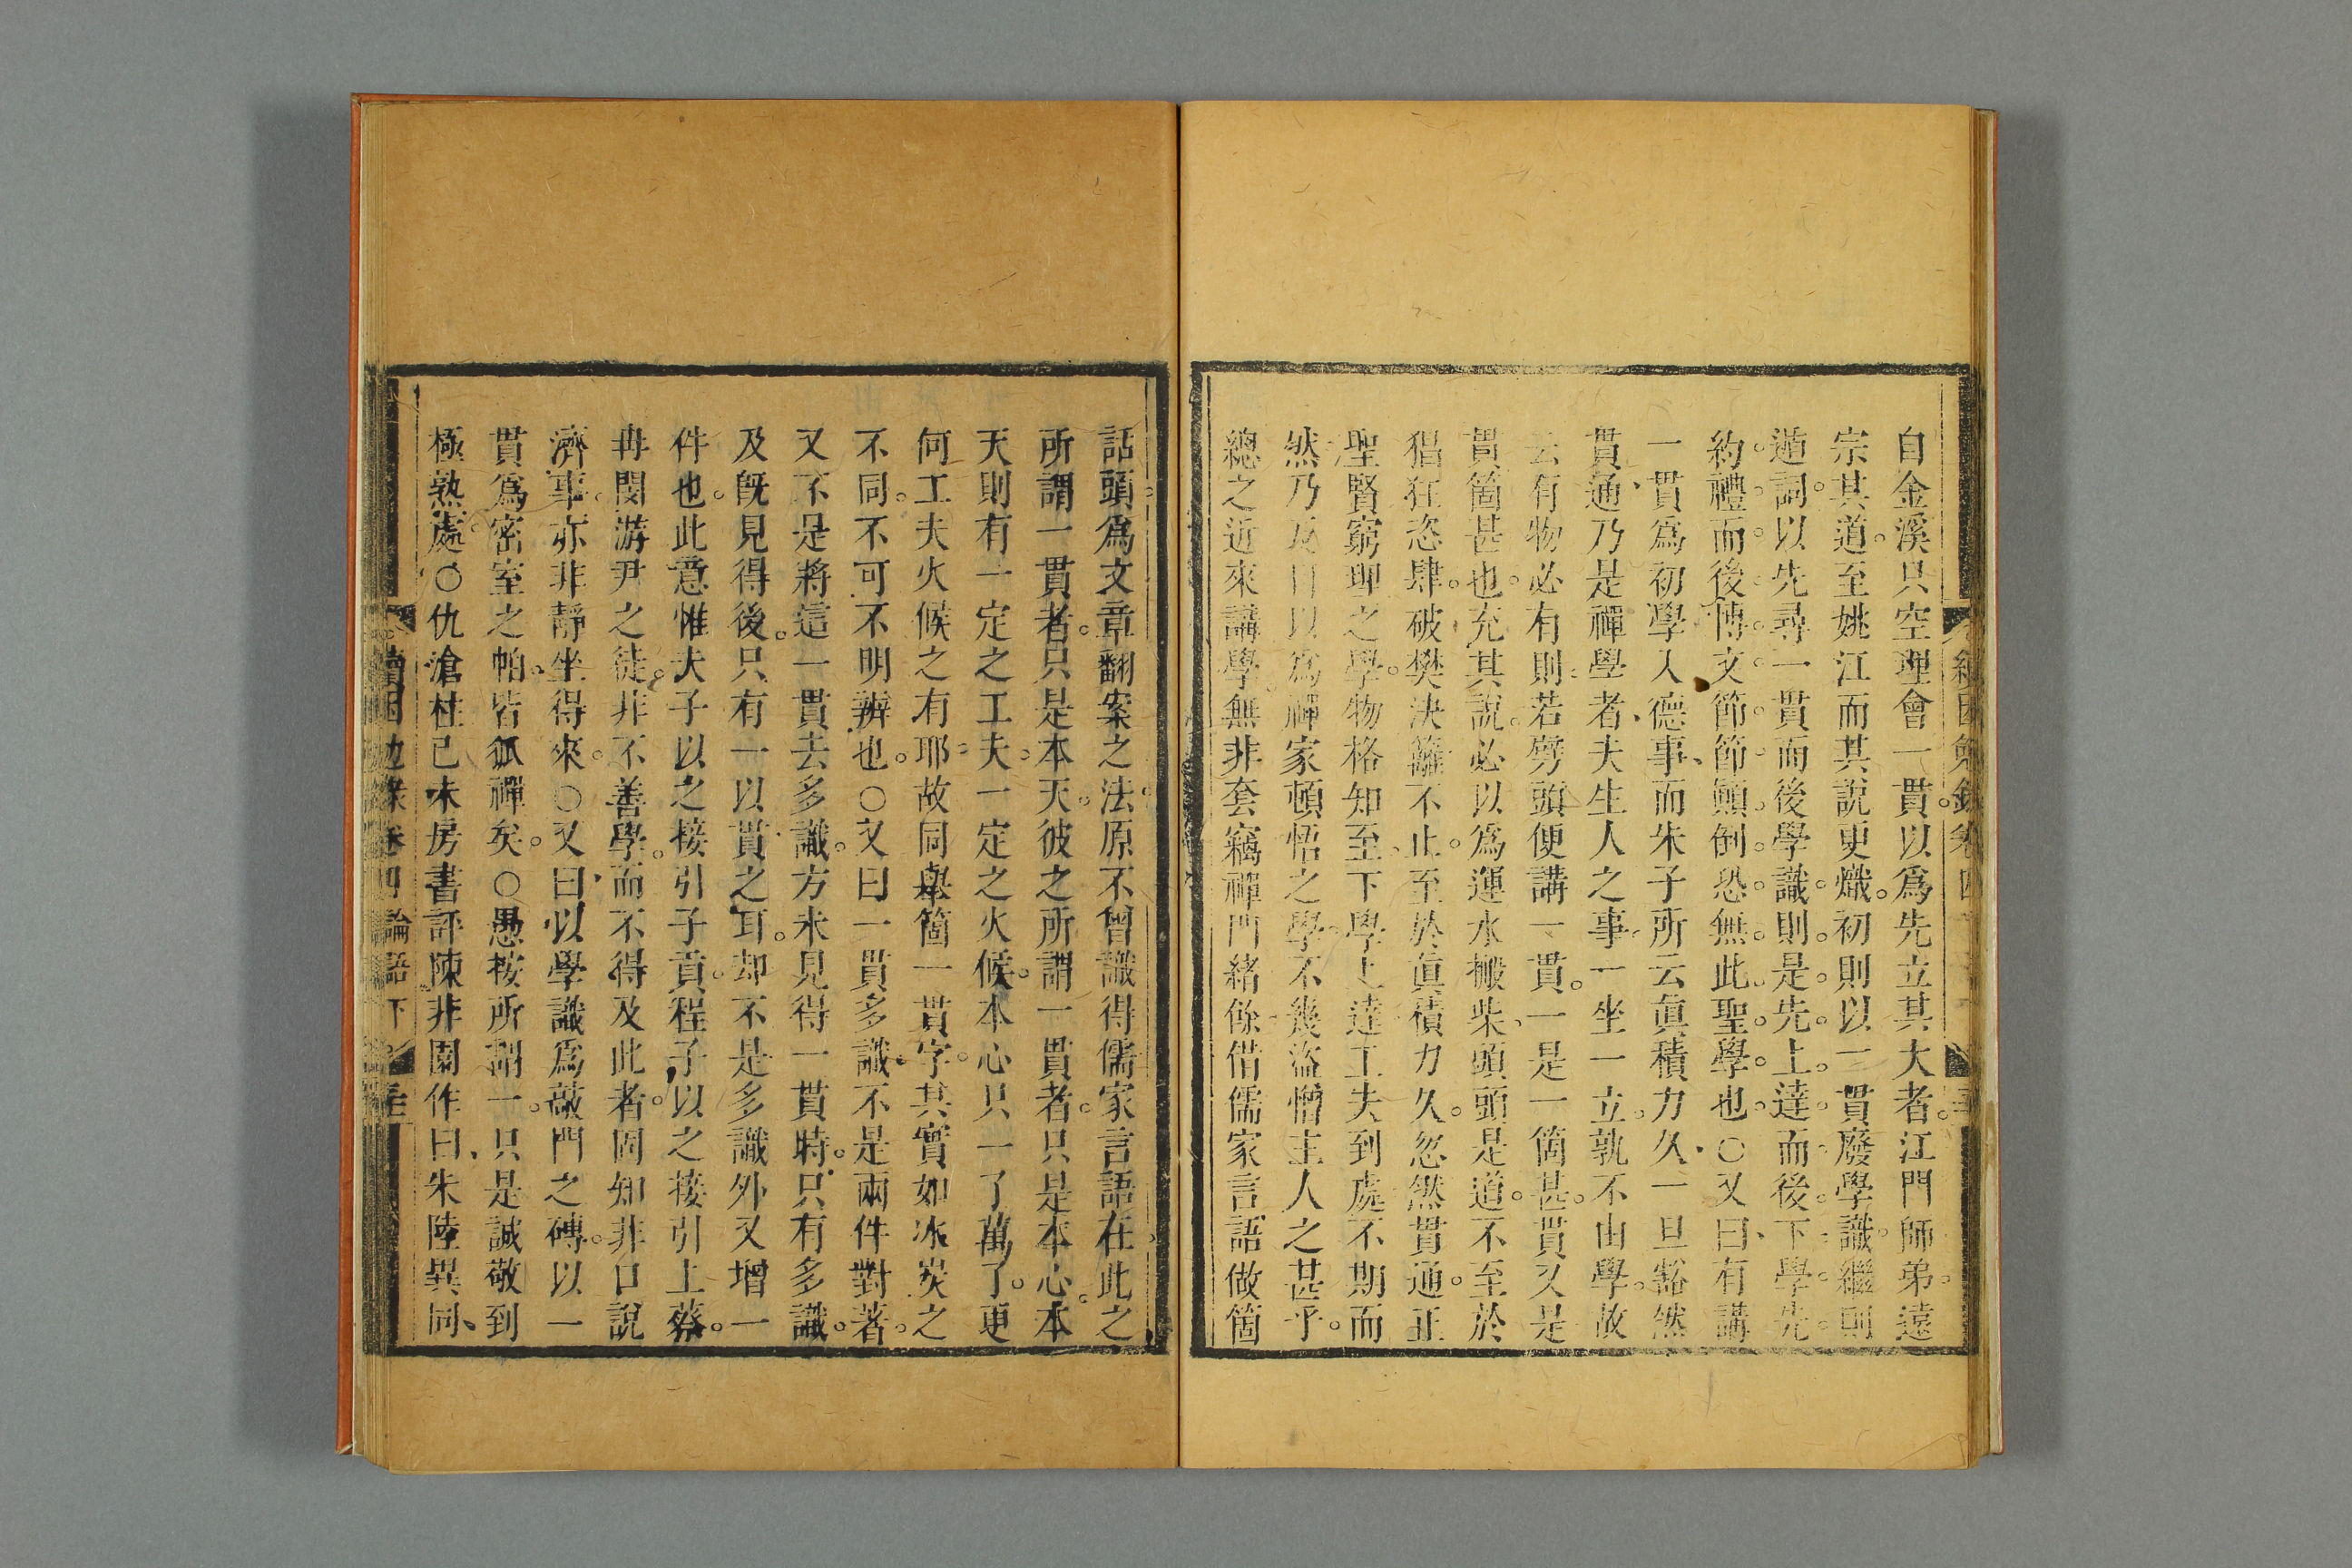 自金溪只空理會一貫以爲先立其大者江門師弟遠
宗其道至姚江而其說更熾初則以一貫廢學識繼則
遁詞以先尋一貫而後學識則是先上達而後下學先
約禮而後博文節節顛倒恐無此聖學也○又曰有講
一貫爲初學入德事而朱子所云眞積力久一旦豁然
貫通乃是禪學者夫生人之事一坐一立孰不由學故
云有物必有則若劈頭便講一貫一是一箇甚貫又是
貫箇甚也充其說必以爲運水搬柴頭頭是道不至於
猖狂恣肆破樊決籬不止至於眞積力久忽然貫通正
聖賢窮理之學物格知至下學上達工夫到處不期而
然乃反目以爲禪家頓悟之學不幾盜憎主人之甚乎
總之近來講學無非套竊禪門緒餘借儒家言語做箇
話頭爲文章翻案之法原不曾識得儒家言語在此之
所謂一貫者只是本天彼之所謂一貫者只是本心本
天則有一定之工夫一定之火候本心只一了萬了更
何工夫火候之有耶故同與箇一貫字其實如冰炭之
不同不可不明辨也○又曰一貫多識不是兩件對著
又不是將這一貫去多識方未見得一貫時只有多識
及旣見得後只有一以貫之耳却不是多識外又增一
件也此意惟夫子以之接引子貢程子以之接引上蔡
冉閔游尹之徒非不善學而不得及此者固知非口說
濟事亦非靜坐得來○又曰以學識爲敲門之磚以一
貫爲密室之帕皆狐禪矣○愚按所謂一只是誠敬到
極熟處○仇滄柱己未房書評陳非園作曰朱陸異同
續困勉錄卷四論語下